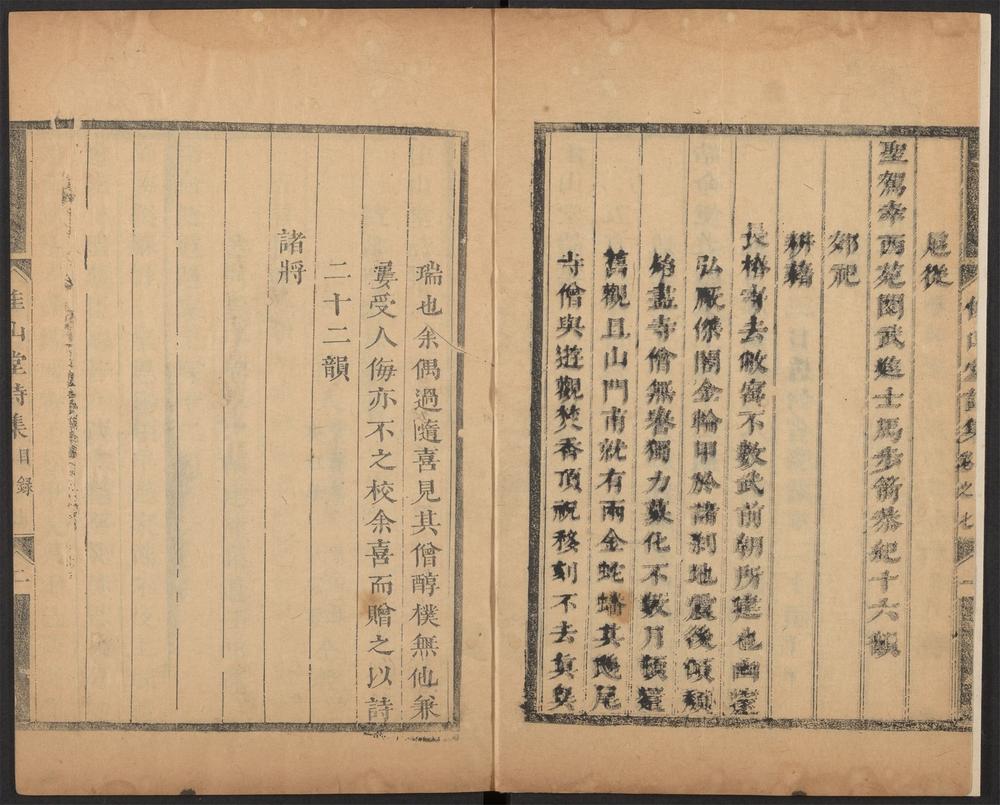 佳山堂詩集卷之七 一
扈從
聖駕幸西苑閱武進士馬步箭恭紀十六韻
郊祀
耕藉
長椿寺去敝寓不數武前朝所建也幽邃
弘厰傑閣金輪甲於諸刹地震後傾頹
殆盡寺僧無譽獨力募化不數月頓還
舊觀且山門甫就有兩金蛇蟠其鴟尾
寺僧與遊觀焚香頂祝移刻不去真異
瑞也余偶過隨喜見其僧醇樸無他兼
屢受人侮亦不之校余喜而贈之以詩
二十二韻
諸將
佳山堂詩集 目錄 二